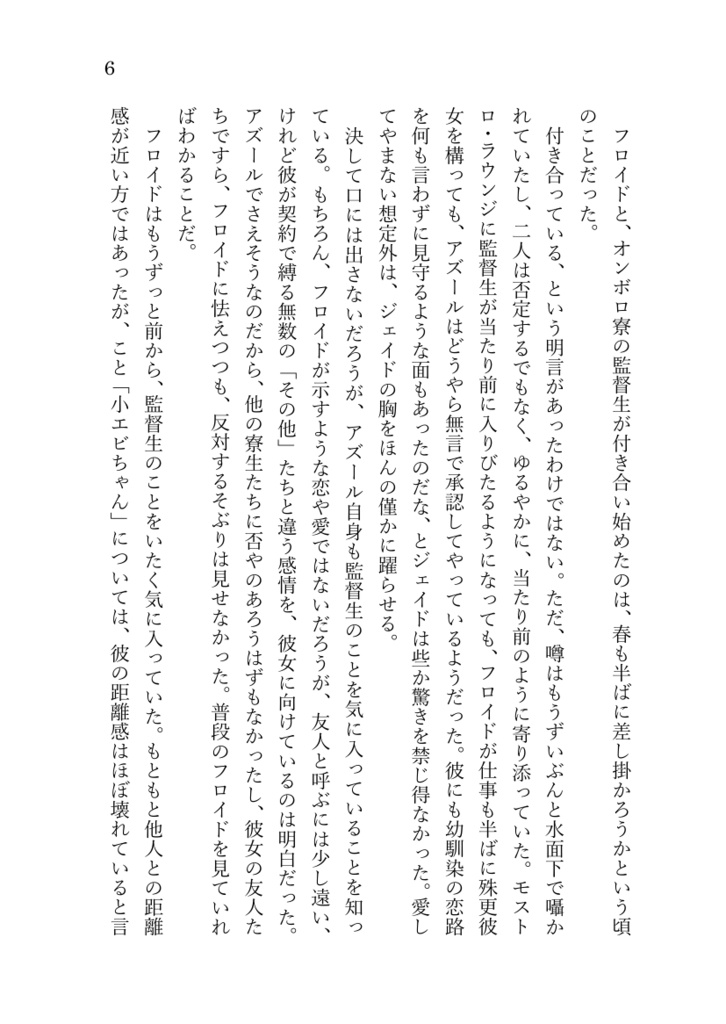 6
　フロイドと、オンボロ寮の監督生が付き合い始めたのは、春も半ばに差し掛かろうかという頃
のことだった。
　付き合っている、という明言があったわけではない。ただ、噂はもうずいぶんと水面下で囁か
れていたし、二人は否定するでもなく、ゆるやかに、当たり前のように寄り添っていた。モスト
ロ・ラウンジに監督生が当たり前に入りびたるようになっても、フロイドが仕事も半ばに殊更彼
女を構っても、アズールはどうやら無言で承認してやっているようだった。彼にも幼馴染の恋路
を何も言わずに見守るような面もあったのだな、とジェイドは些か驚きを禁じ得なかった。愛し
てやまない想定外は、ジェイドの胸をほんの僅かに躍らせる。
　決して口には出さないだろうが、アズール自身も監督生のことを気に入っていることを知っ
ている。もちろん、フロイドが示すような恋や愛ではないだろうが、友人と呼ぶには少し遠い、
けれど彼が契約で縛る無数の「その他」たちと違う感情を、彼女に向けているのは明白だった。
アズールでさえそうなのだから、他の寮生たちに否やのあろうはずもなかったし、彼女の友人た
ちですら、フロイドに怯えつつも、反対するそぶりは見せなかった。普段のフロイドを見ていれ
ばわかることだ。
　フロイドはもうずっと前から、監督生のことをいたく気に入っていた。もともと他人との距離
感が近い方ではあったが、こと「小エビちゃん」については、彼の距離感はほぼ壊れていると言